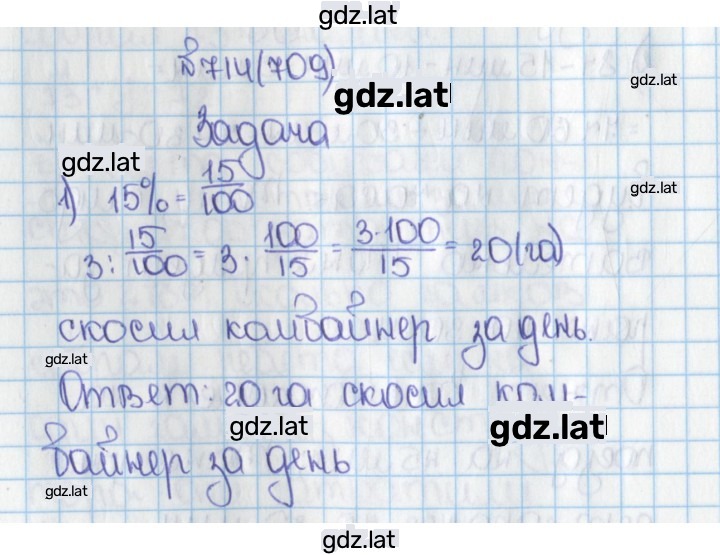 gdz.lat
№714(709)
gdz.lat
gdz.lat
Задача
gdz.lat
gdz.lat
1) 15% = 15/100
3 : 15/100 = 3 · 100/15 = 3·100/15 = 20(га)
скосил комбайнер за день.
gdz.lat
Ответ: 20 га скосил ком-
gdz.lat
gdz.lat
байнер за день
gdz.lat
gdz.lat